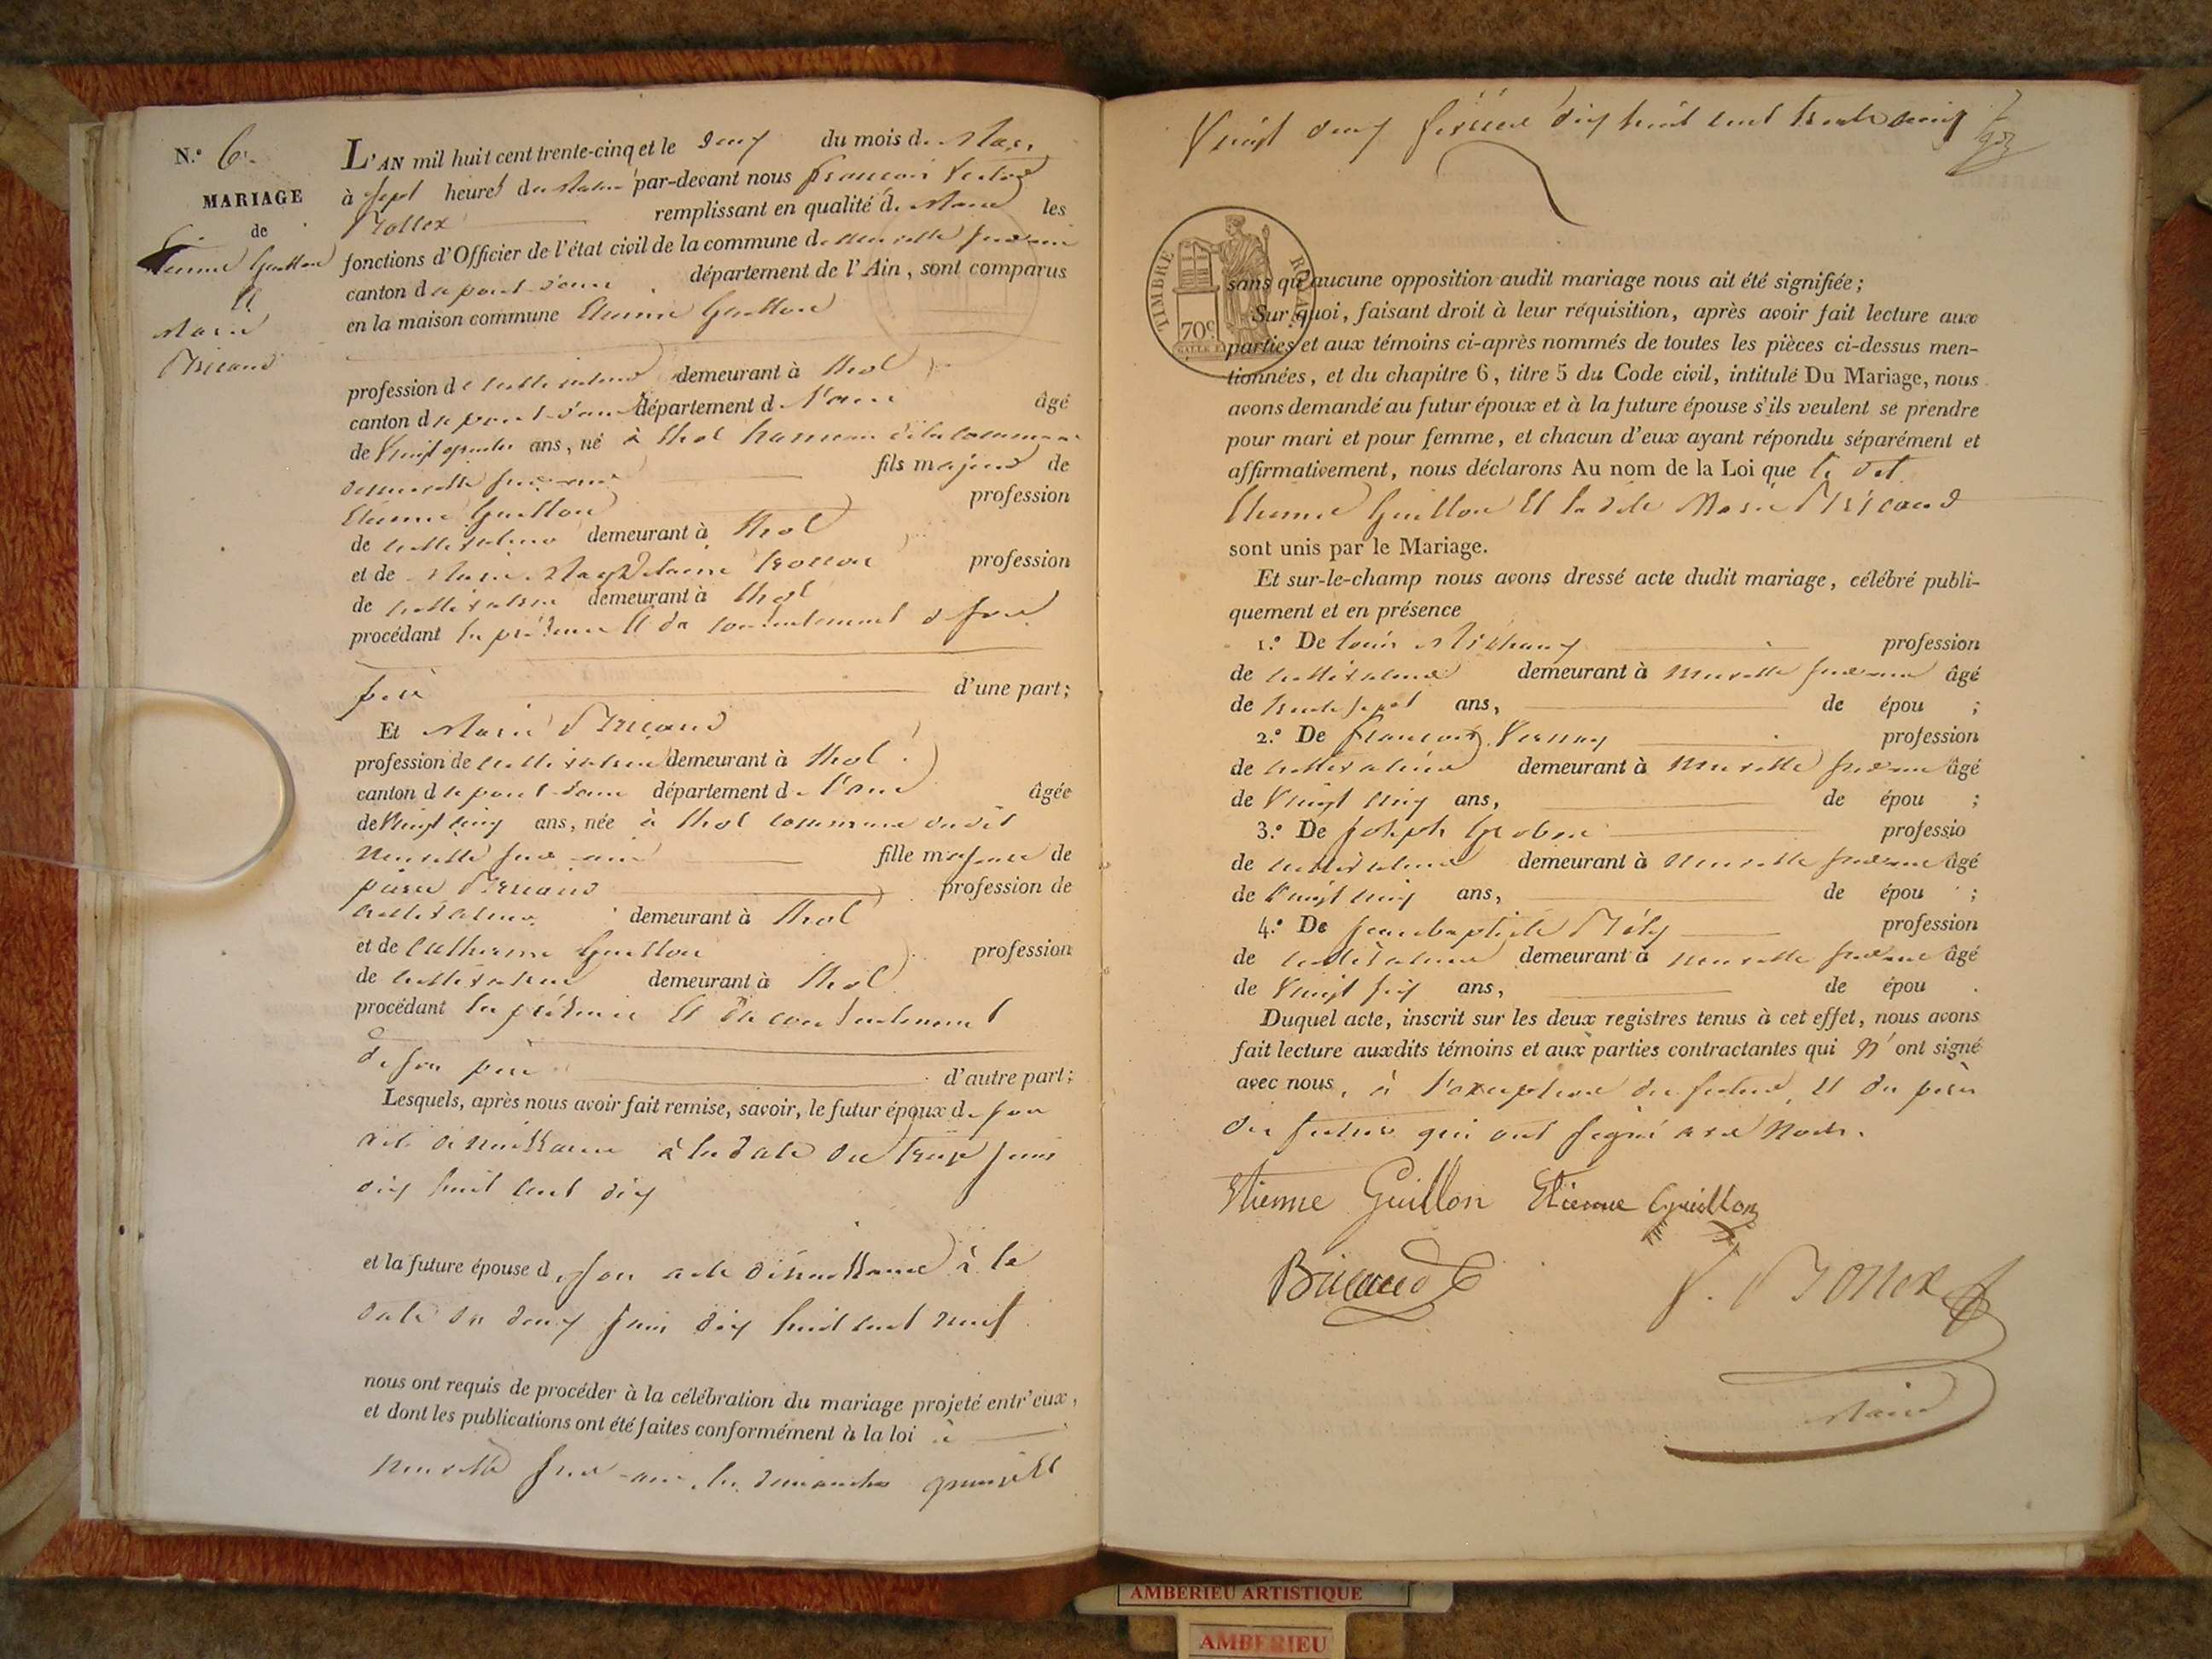 N.º 6.
MARIAGE
de
Etienne Guillon
et
Marie
Bricaud
L'AN mil huit cent trente-cinq et le deux du mois de Mars
à sept heures du matin par-devant nous françois victor
Bollex remplissant en qualité de Maire les
fonctions d'Officier de l'état civil de la commune de neuville sur ain
canton de pont d'ain département de l'Ain, sont comparus
en la maison commune Etienne Guillon
profession de cultivateur demeurant à thol
canton de pont-d'ain département de l'ain âgé
de Vingt quatre ans, né à thol hameau de la commune
de neuville sur ain fils majeur de
Etienne Guillon profession
de cultivateur demeurant à thol
et de Marie Magdelaine profession
de cultivatrice demeurant à thol
procédant en présence et du consentement de son
père d'une part;
Et Marie Bricaud
profession de cultivatrice demeurant à thol
canton de pont d'ain département de l'ain âgée
de Vingt cinq ans, née à thol commune dudit
Neuville sur ain fille majeure de
pierre Bricaud profession de
cultivateur demeurant à thol
et de Catherine Guillon profession
de cultivatrice demeurant à thol
procédant en présence et du consentement
de son père d'autre part;
Lesquels, après nous avoir fait remise, savoir, le futur époux de son
acte de naissance à la date du treize juin
dix huit cent dix
et la future épouse de son acte de naissance à la
date du deux juin dix huit cent neuf
nous ont requis de procéder à la célébration du mariage projeté entr'eux,
et dont les publications ont été faites conformément à la loi à
neuville sur-ain, les dimanches quinze et
Vingt deux février dix huit cent trente cinq
TIMBRE ROYAL
70 c.
sans qu'aucune opposition audit mariage nous ait été signifiée;
Sur quoi, faisant droit à leur réquisition, après avoir fait lecture aux
parties et aux témoins ci-après nommés de toutes les pièces ci-dessus men-
tionnées, et du chapitre 6, titre 5 du Code civil, intitulé Du Mariage, nous
avons demandé au futur époux et à la future épouse s'ils veulent se prendre
pour mari et pour femme, et chacun d'eux ayant répondu séparément et
affirmativement, nous déclarons Au nom de la Loi que le dit
Etienne Guillon et la dite Marie Bricaud
sont unis par le Mariage.
Et sur-le-champ nous avons dressé acte dudit mariage, célébré publi-
quement et en présence
1.º De louis Michaux profession
de cultivateur demeurant à neuville sur ain âgé
de trente sept ans, de épou ;
2.º De françois Vernay profession
de cultivateur demeurant à Neuville sur ain âgé
de Vingt cinq ans, de épou ;
3.º De joseph Grobon professio
de cultivateur demeurant à neuville sur ain âgé
de Vingt cinq ans, de épou ;
4.º De jean baptiste profession
de cultivateur demeurant à neuville sur ain âgé
de Vingt six ans, de épou .
Duquel acte, inscrit sur les deux registres tenus à cet effet, nous avons
fait lecture auxdits témoins et aux parties contractantes qui n'ont signé
avec nous, à l'exception du futur, et du père
du futur qui ont signé avec Nous.
Etienne Guillon Etienne Guillon
Bricaud f. Bollex
Maire
AMBERIEU ARTISTIQUE
AMBERIEU